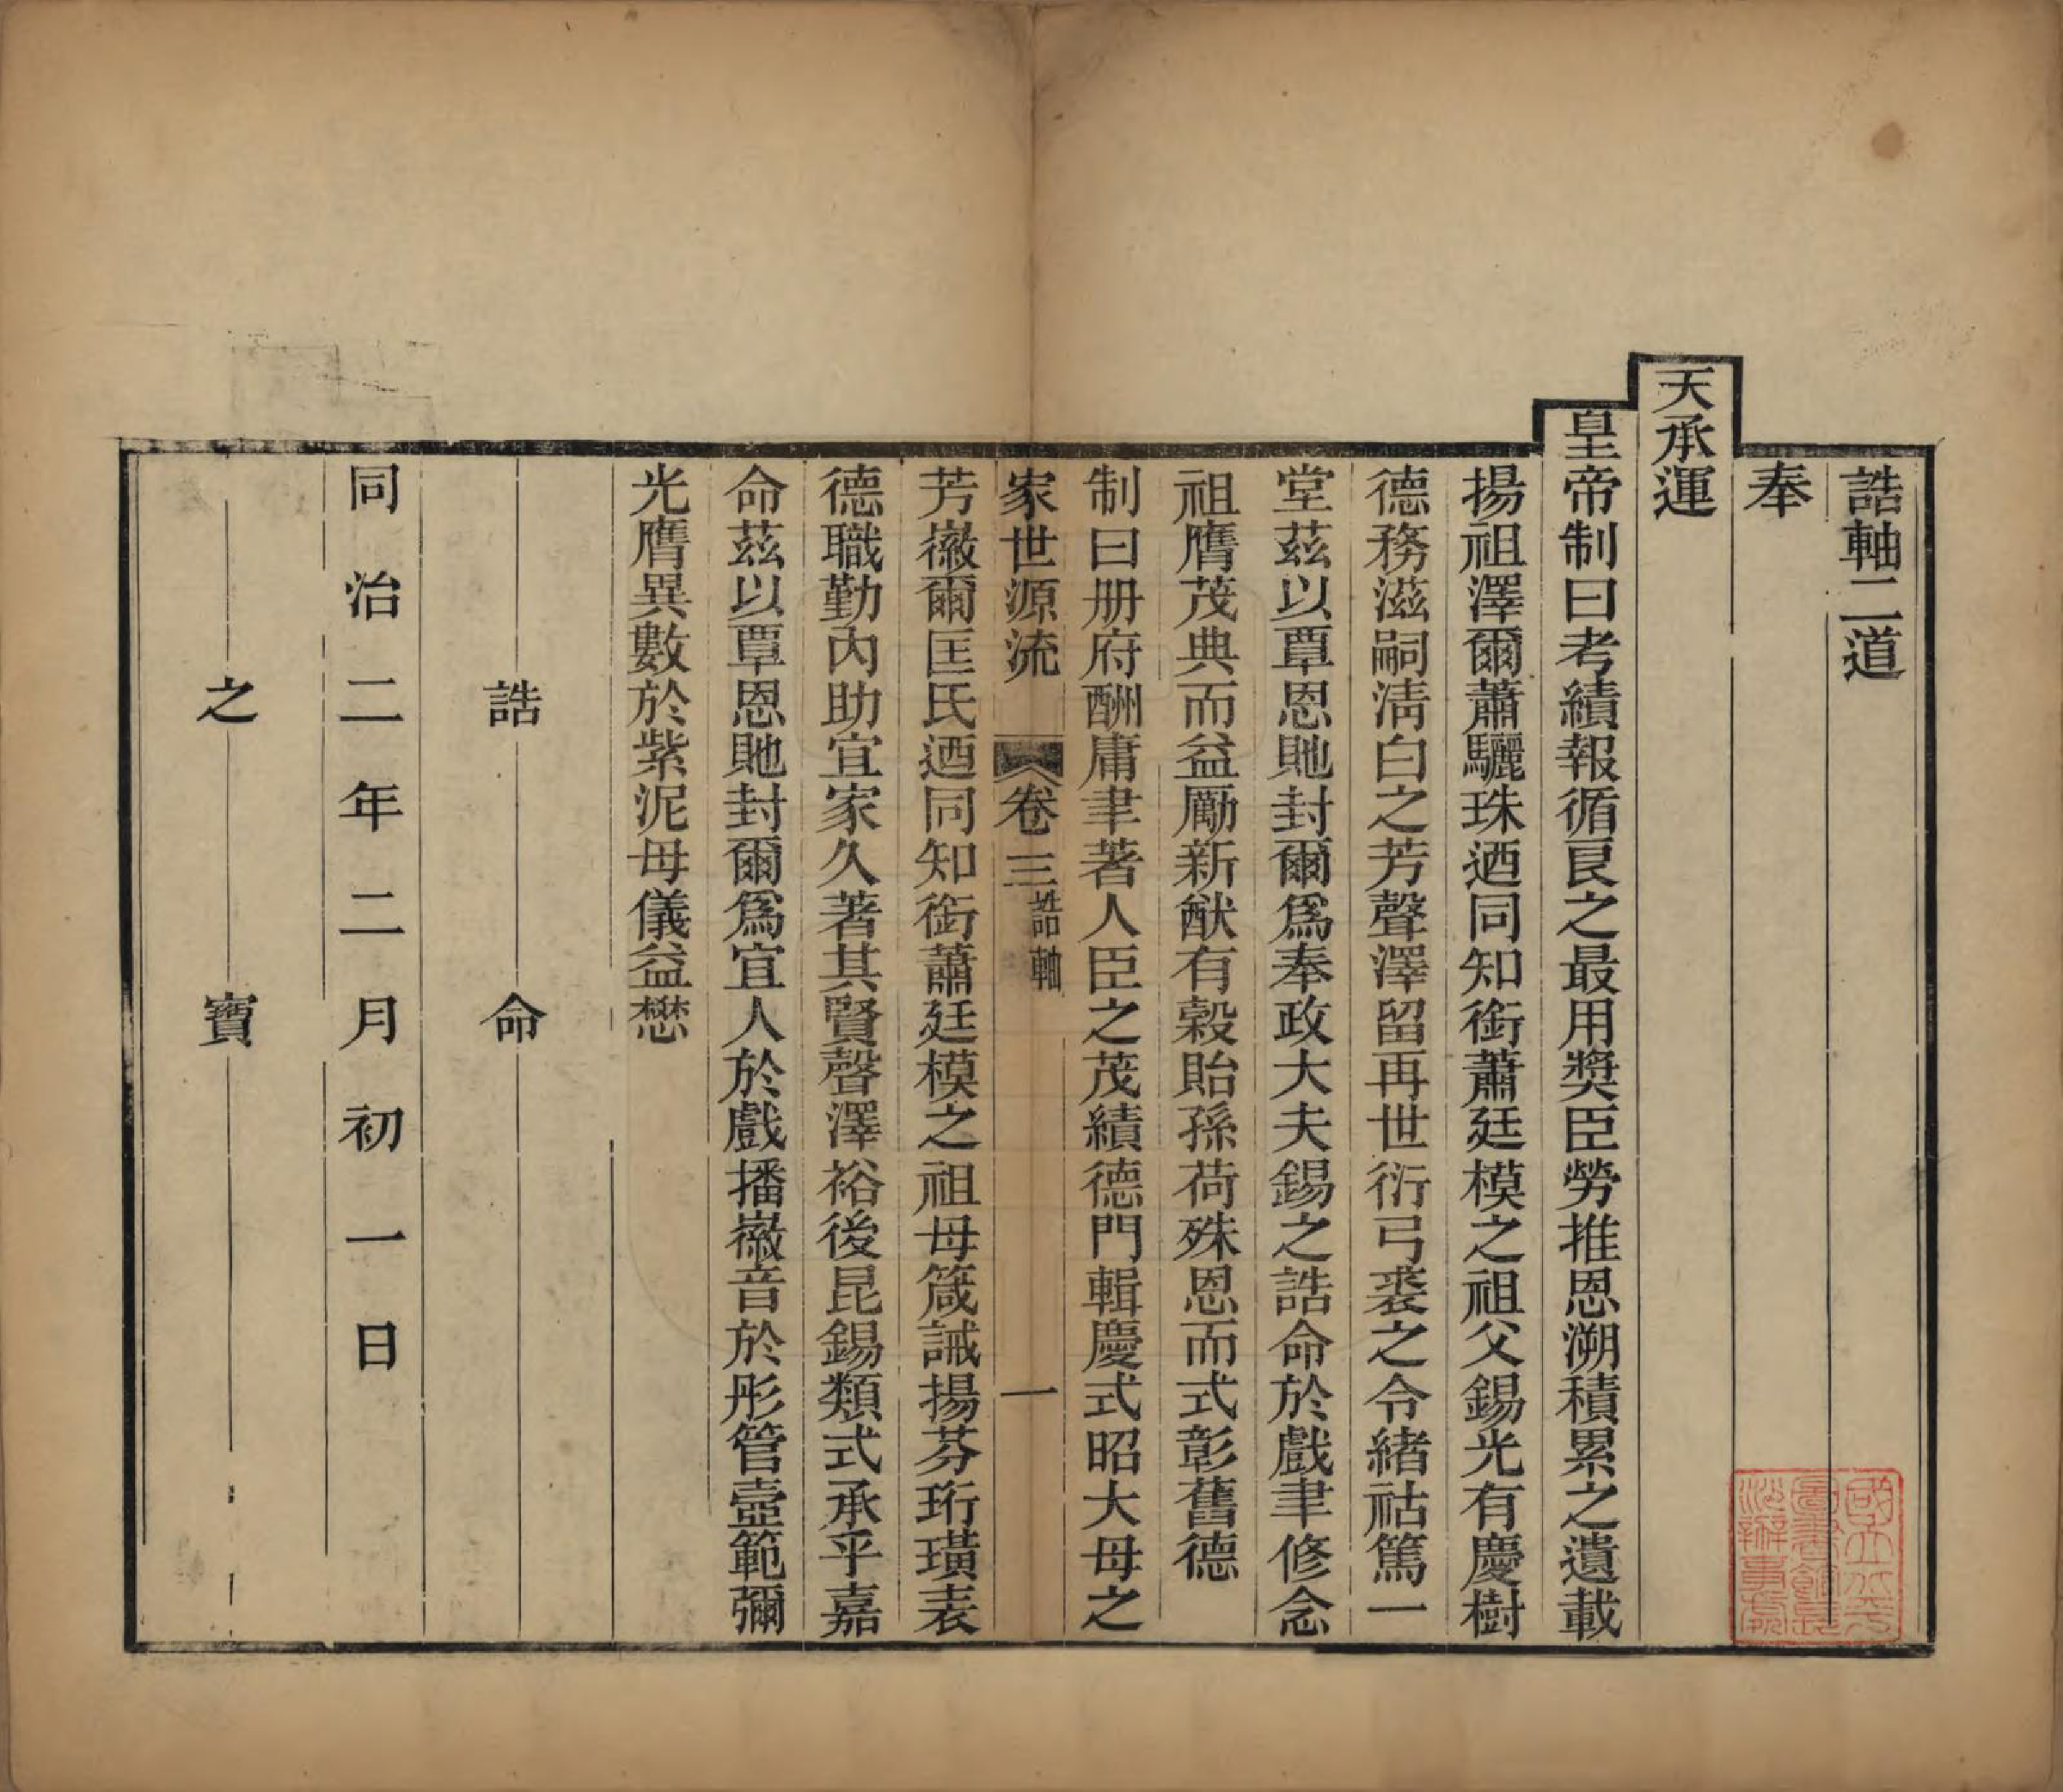 誥軸二道
奉
天承運
皇帝制曰考績報循良之最用奬臣勞推恩溯積累之遺載
揚祖澤爾蕭驪珠迺同知銜蕭廷模之祖父錫光有慶樹
德務滋嗣清白之芳聲澤留再世衍弓裘之令緒祜篤一
堂茲以覃恩貤封爾爲奉政大夫錫之誥命於戲聿修念
祖膺茂典而益勵新猷有穀貽孫荷殊恩而式彰舊德
制曰册府酬庸聿著人臣之茂績德門輯慶式昭大母之
家世源流 卷三 誥軸 一
芳徽爾匡氏迺同知銜蕭廷模之祖母箴誡揚芬珩璜表
德職勤內助宜家久著其賢聲澤裕後昆錫類式承乎嘉
命茲以覃恩貤封爾爲宜人於戲播徽音於彤管壼範彌
光膺異數於紫泥母儀益懋
誥命
同治二年二月初一日
之寶
國立北平
圖書館長
沙辦事處